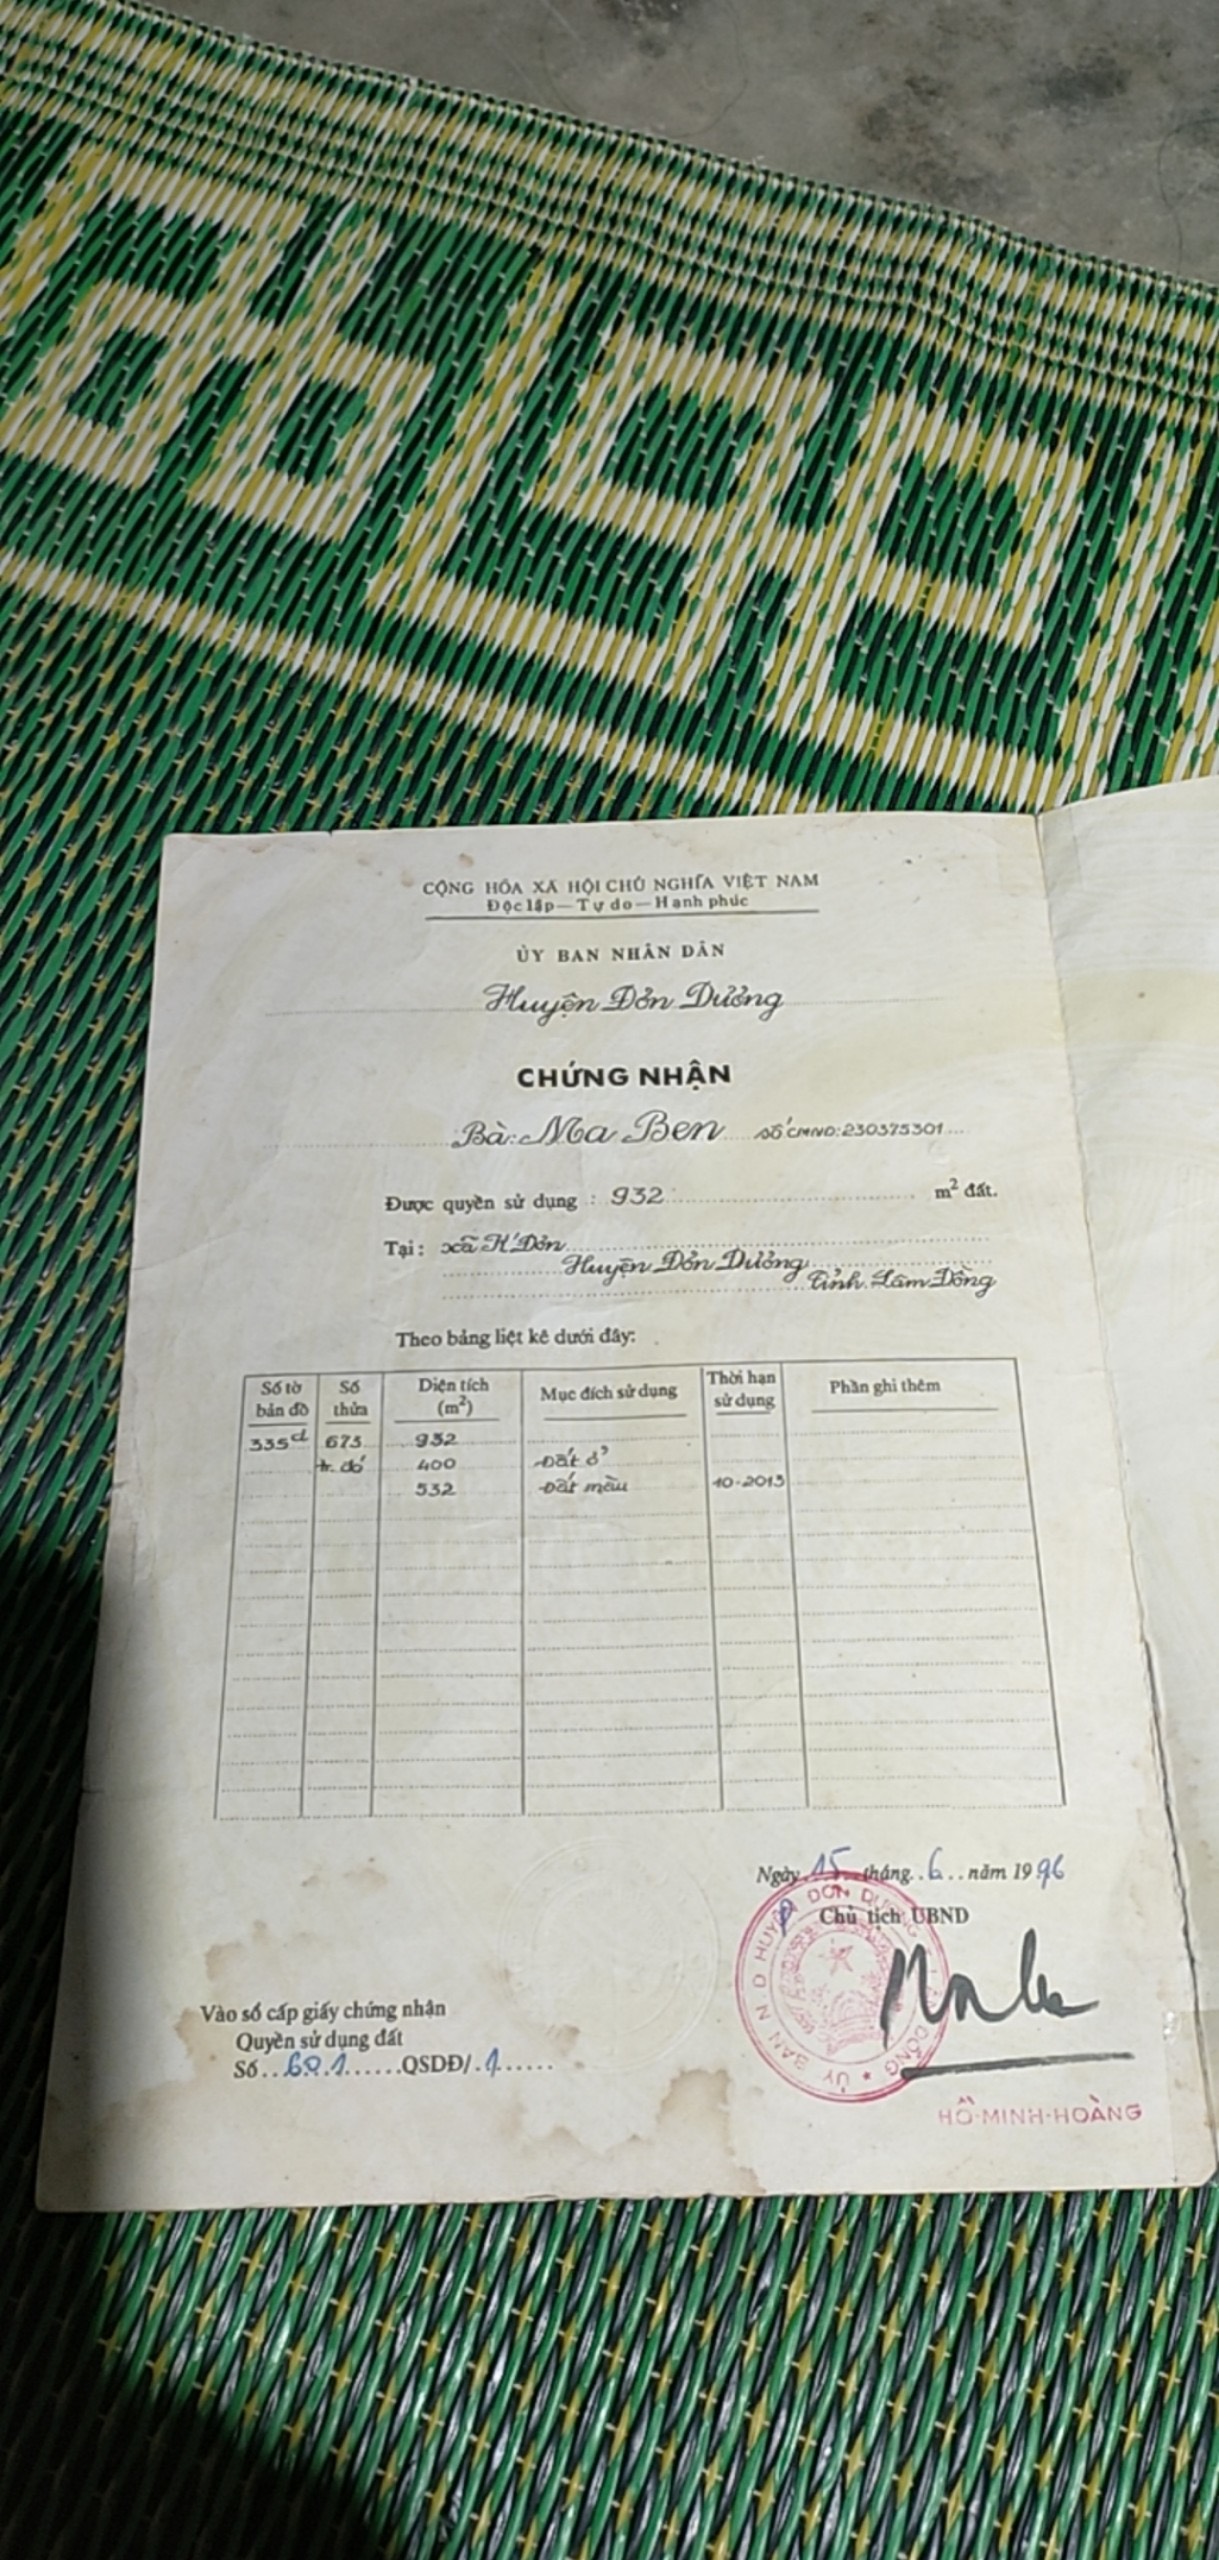 CỘNG HÒA XÃ HỘI CHỦ NGHĨA VIỆT NAM
Độc lập — Tự do — Hạnh phúc
ỦY BAN NHÂN DÂN
Huyện Đơn Dương
CHỨNG NHẬN
Bà: Ma Ben số CMND: 230375301
Được quyền sử dụng : 932 m² đất.
Tại: xã K'Đơn
Huyện Đơn Dương
tỉnh Lâm Đồng
Theo bảng liệt kê dưới đây:
Số tờ bản đồ Số thửa Diện tích (m²) Mục đích sử dụng Thời hạn sử dụng Phần ghi thêm
335d 673 932
tr. đó 400 Đất ở
532 Đất màu 10-2013
Ngày 15 tháng 6 năm 1996
Chủ tịch UBND
ỦY BAN N D HUYỆN ĐƠN DƯƠNG
Vào sổ cấp giấy chứng nhận
Quyền sử dụng đất
Số QSDĐ/
HỒ-MINH-HOÀNG